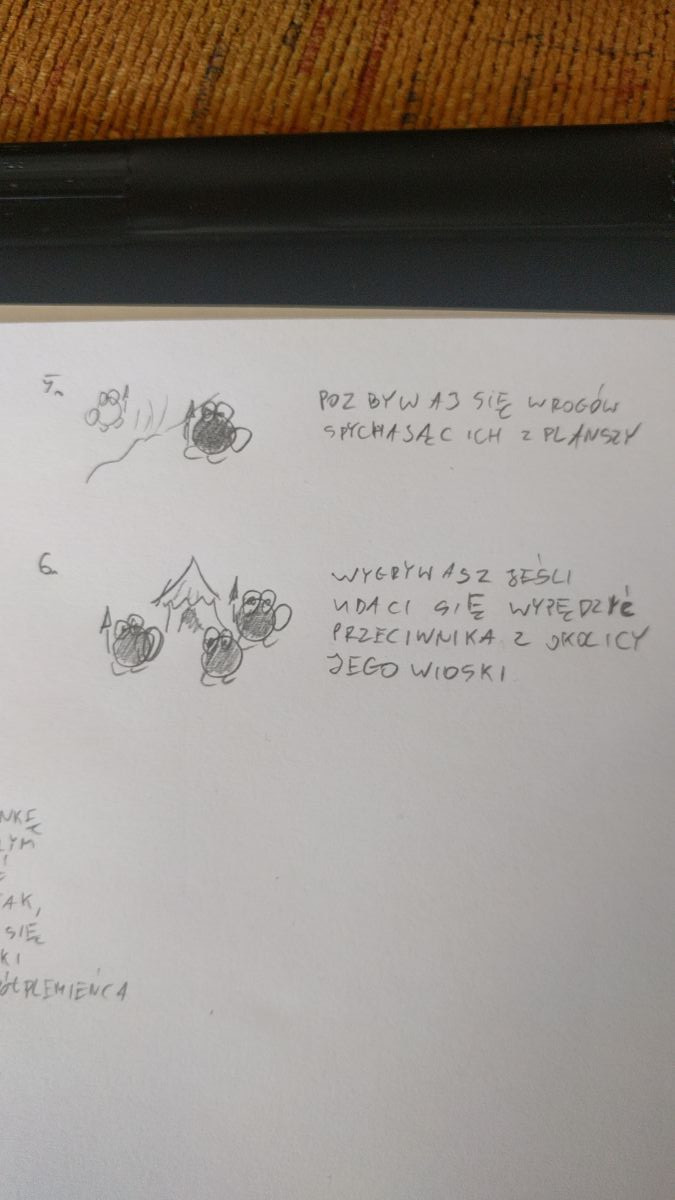 5.
POZBYWAJ SIĘ WROGÓW
SPYCHAJĄC ICH Z PLANSZY
6.
WYGRYWASZ JEŚLI
UDA CI SIĘ WYPĘDZIĆ
PRZECIWNIKA Z OKOLICY
JEGO WIOSKI
NKĘ
ŁYM
I
Ę
AK,
SIĘ
KI
ÓŁPLEMIEŃCA